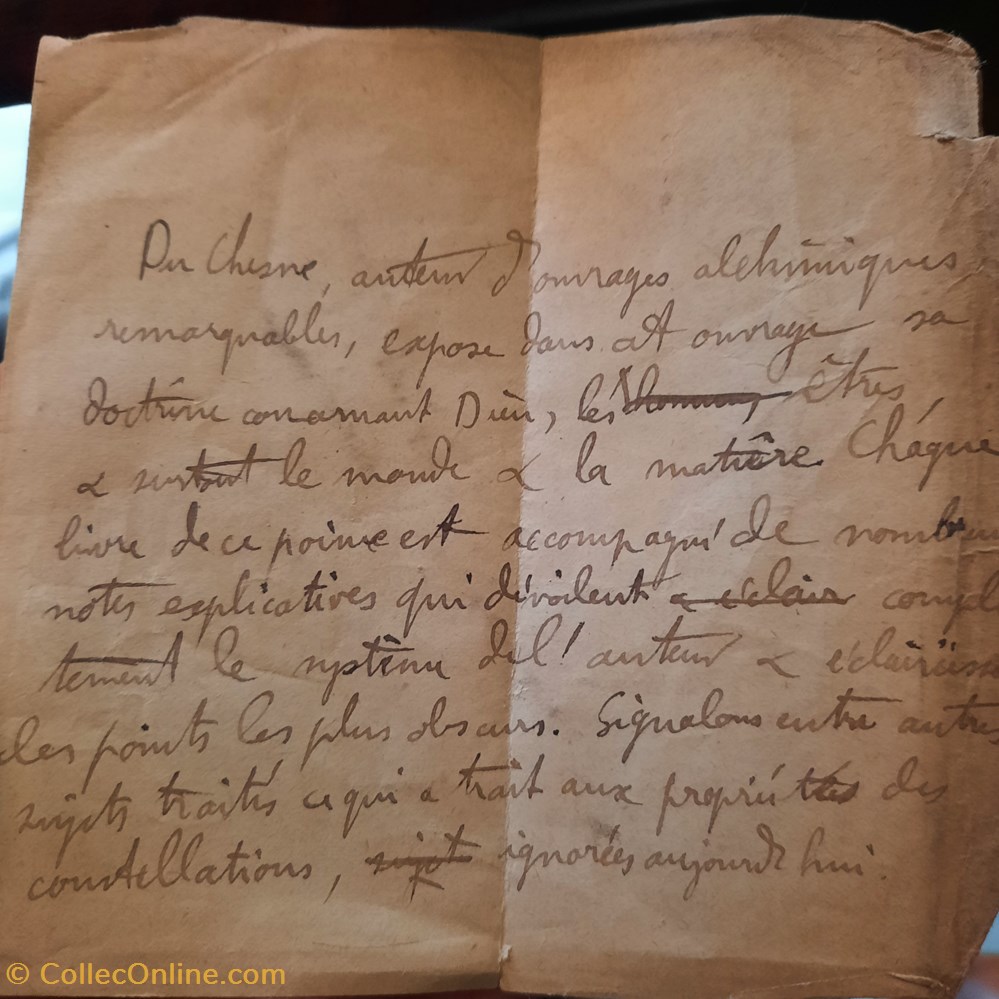 Du Chesne, auteur d'ouvrages alchimiques
remarquables, expose dans cet ouvrage sa
doctrine concernant Dieu, les hommes, êtres,
& surtout le monde & la matière. Chaque
livre de ce poème est accompagné de nombreu
notes explicatives qui dévoilent & éclair complè
tement le système de l'auteur & éclaircisse
les points les plus obscurs. Signalons entre autres
sujets traités ce qui a trait aux propriétés des
constellations, sujet ignorées aujourd'hui.
© CollecOnline.com